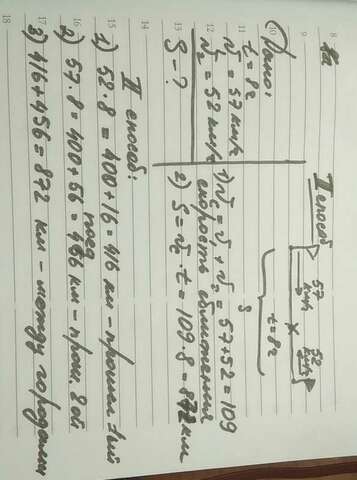 II способ
57 км/ч
52 км/ч
t = 8ч
S
Дано:
t = 8ч
v = 57 км/ч
v₂ = 52 км/ч
S - ?
1) vс = v₁ + v₂ = 57 + 52 = 109
скорость сближения
2) S = vс · t = 109 · 8 = 872 км
II способ:
1) 52 · 8 = 400 + 16 = 416 км - прошел 1ый
поезд
2) 57 · 8 = 400 + 56 = 456 км - прош. 2ой
3) 416 + 456 = 872 км - между городами
8
9
10
11
12
13
14
15
16
17
18